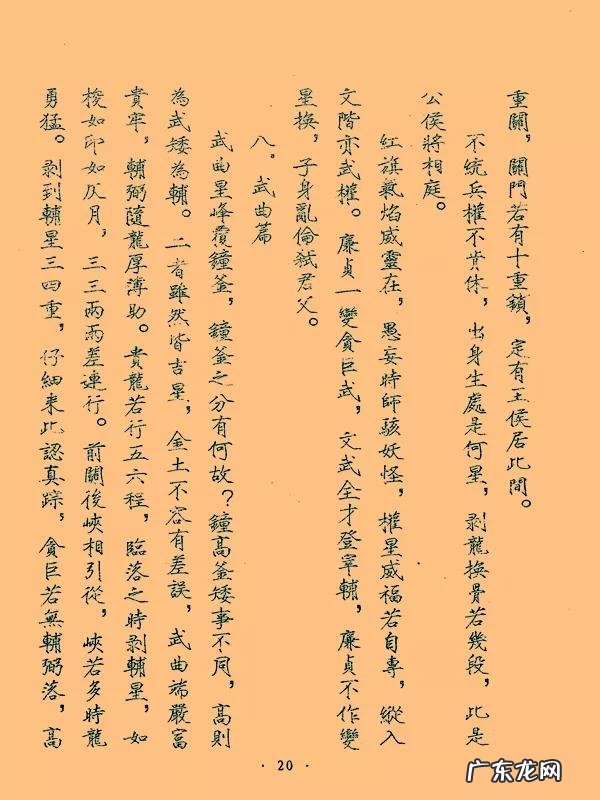 重關，關門若有十重鎖，定有王侯居此間。
不統兵權不貴休，出身生處是何星，剥龍換骨若幾段，此是
公侯將相庭。
紅旗氣焰威靈在，愚妄時師駭妖怪，權星威福若自專，縱入
文階亦武權。廉貞一變貪巨武，文武全才登宰輔，廉貞不作變
星換，子身亂倫弑君父。
八。武曲篇
武曲星峰覆鐘釜，鐘釜之分有何故？鐘高釜矮事不同，高則
為武矮為輔。二者雖然皆吉星，金土不容有差誤，武曲端嚴富
貴牢，輔弼隨龍厚薄助。貴龍若行五六程，臨落之時剥輔星，如
梭如印如仄月，三三兩兩差連行。前關後峽相引從，峽若多時龍
勇猛。剥到輔星三四重，仔細来此認真踪，貪巨若無輔弼落，高
·20·
广东龙网